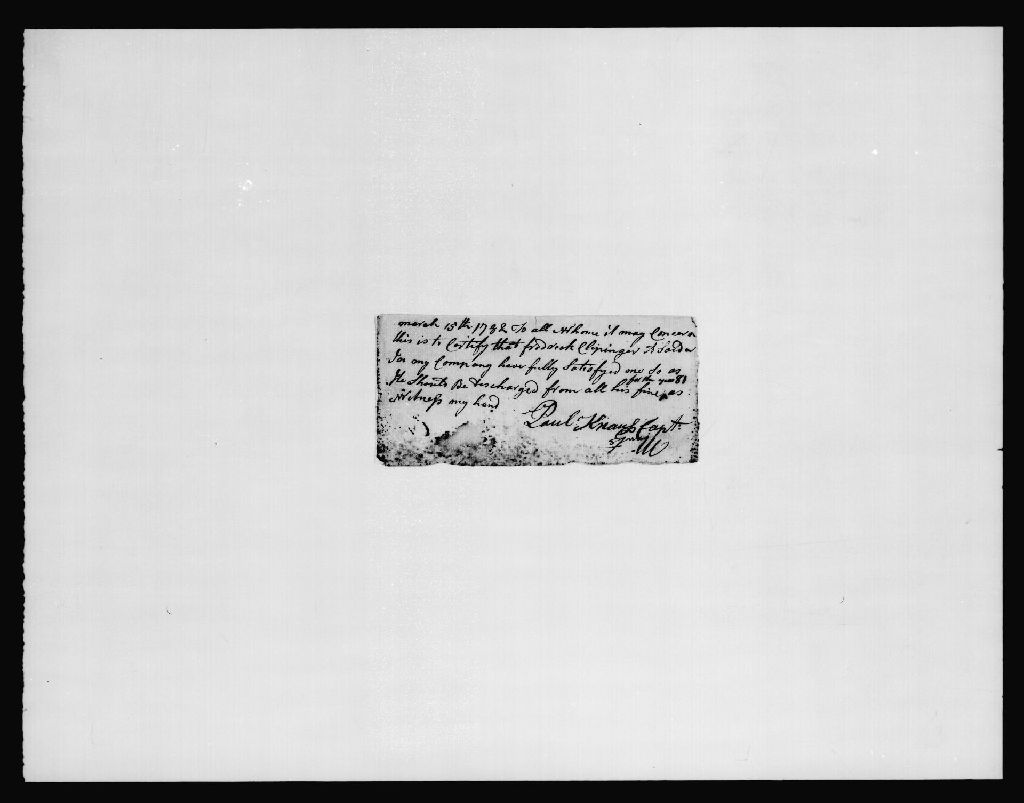 march 15th 1782 To all Whome it may Concern
this is to Certify that fredrick Clipinger A Solder
In my Company have fully Satisfyed me So as
for the year 81
He Shoult Be Discharged from all his fines as
Witness my hand
Paul Knauss Capt.